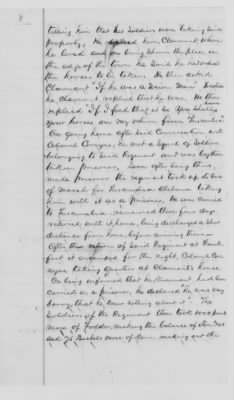 8
telling him that his Soldiers were taking said
property. He asked him, Claimant where
he lived and on being shown the place, in
the edge of the town he said he needed
the horses to be taken. He then asked
Claimant "If he was a Union Man"
he Claimant replied that he was. He then
replied "If I find that it is so You shall
your horses on my return from Tuscumbia"
On going home after said Conversation with
Colonel Cornyn, he met a Squad of Soldiers
belonging to said Regiment and was by them
taken prisoner. Soon after being thus
made prisoner the regiment took up its line
of March for Tuscumbia Alabama taking
him with it as a prisoner. He was carried
to Tuscumbia remained there four days
returned with it home, being discharged a short
distance from home, before arriving there.
After the return of said Regiment to Frank-
fort it encamped for the night, Colonel Cor-
nyn taking quarters at Claimant's house
On being informed that he, Claimant had been
carried as a prisoner, he declared "he was very
sorry, that he knew nothing about it". The
Soldiers of the Regiment then took and put
more of Fodder, making the balance of
and 75 Bushels more of Corn making out the